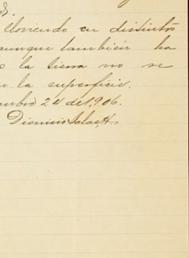 s.
lloviendo en distintos
aunque tambien ha
la tierra no se
la superficie.
24 de 1906.
Dionisio